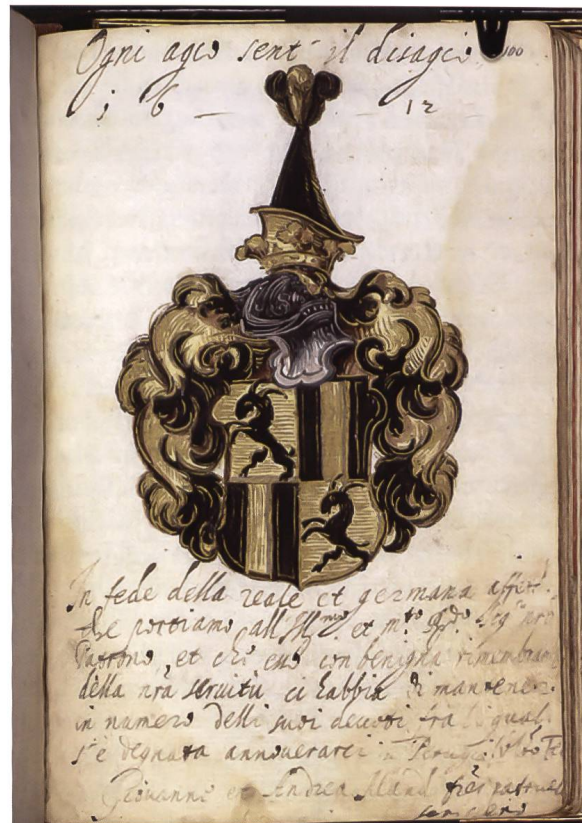 Ogni agio sent' il disagio
100
1 6 — — 12
In fede della reale et germana affett.
che portiamo all' Ill.mo et m.to sig.r nro
Patrone, et ch' esso con benigna rimembran
della nrã servitù ci habbia di mantener
in numero delli suoi devoti fra li quali
s'è degnata annoverarci
Giovanni et Andrea